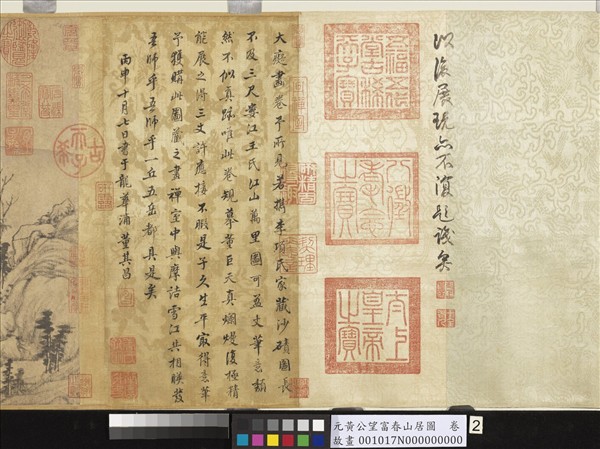 以後展玩亦不復題識矣
五福五代堂古稀天子寶
八徵耄念之寶
太上皇帝之寶
大癡畫卷予所見若檇李項氏家藏沙磧圖長
不及三尺婁江王氏江山萬里圖可盈丈筆意頹
然不似真跡唯此卷規摹董巨天真爛熳復極精
能展之得三丈許應接不暇是子久生平最得意筆
予獲購此圖藏之畫禪室中與摩詰雪江共相映發
吾師乎吾師乎一丘五岳都具是矣
丙申十月七日書于龍華浦董其昌
古希天子
元黃公望富春山居圖 卷
故畫 001017N000000000
2